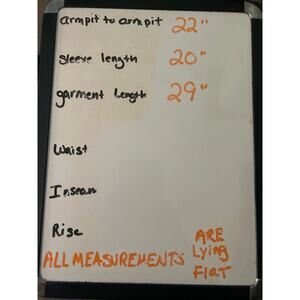 armpit to armpit 22"
sleeve length 20"
garment Length 29"
Waist
Inseam
Rise
ALL MEASUREMENTS ARE
Lying
Flat